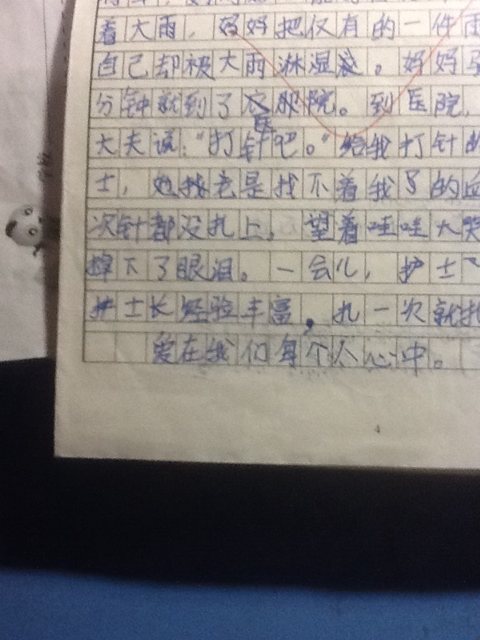 着大雨，妈妈把仅有的一件雨
自己却被大雨淋湿。妈妈
分钟就到了医院。到医院，
大夫说："打针吧。"给我打针的
士，她老是找不着我的血
次针都没扎上，望着哇哇大哭
掉下了眼泪。一会儿，护士
护士长经验丰富，扎一次就扎
爱在我们每个人心中。
4